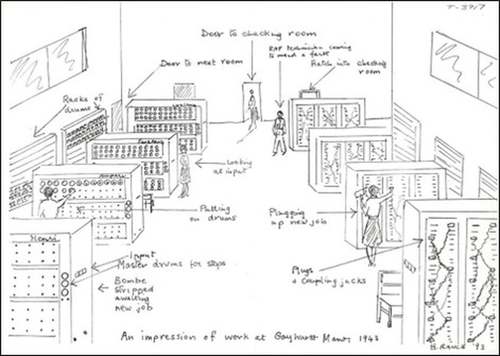 T-3917
Door to checking room
Door to next room
RAF technician coming
to mend a fault
Hatch into checking
room
Racks of
drums
Looking
at input
Putting
on drums
Plugging
up new job
Henri
Input
Master drums for stops
Bombe
stripped
awaiting
new job
Plugs
& coupling jacks
An impression of work at Gayhurst Manor 1943
'93